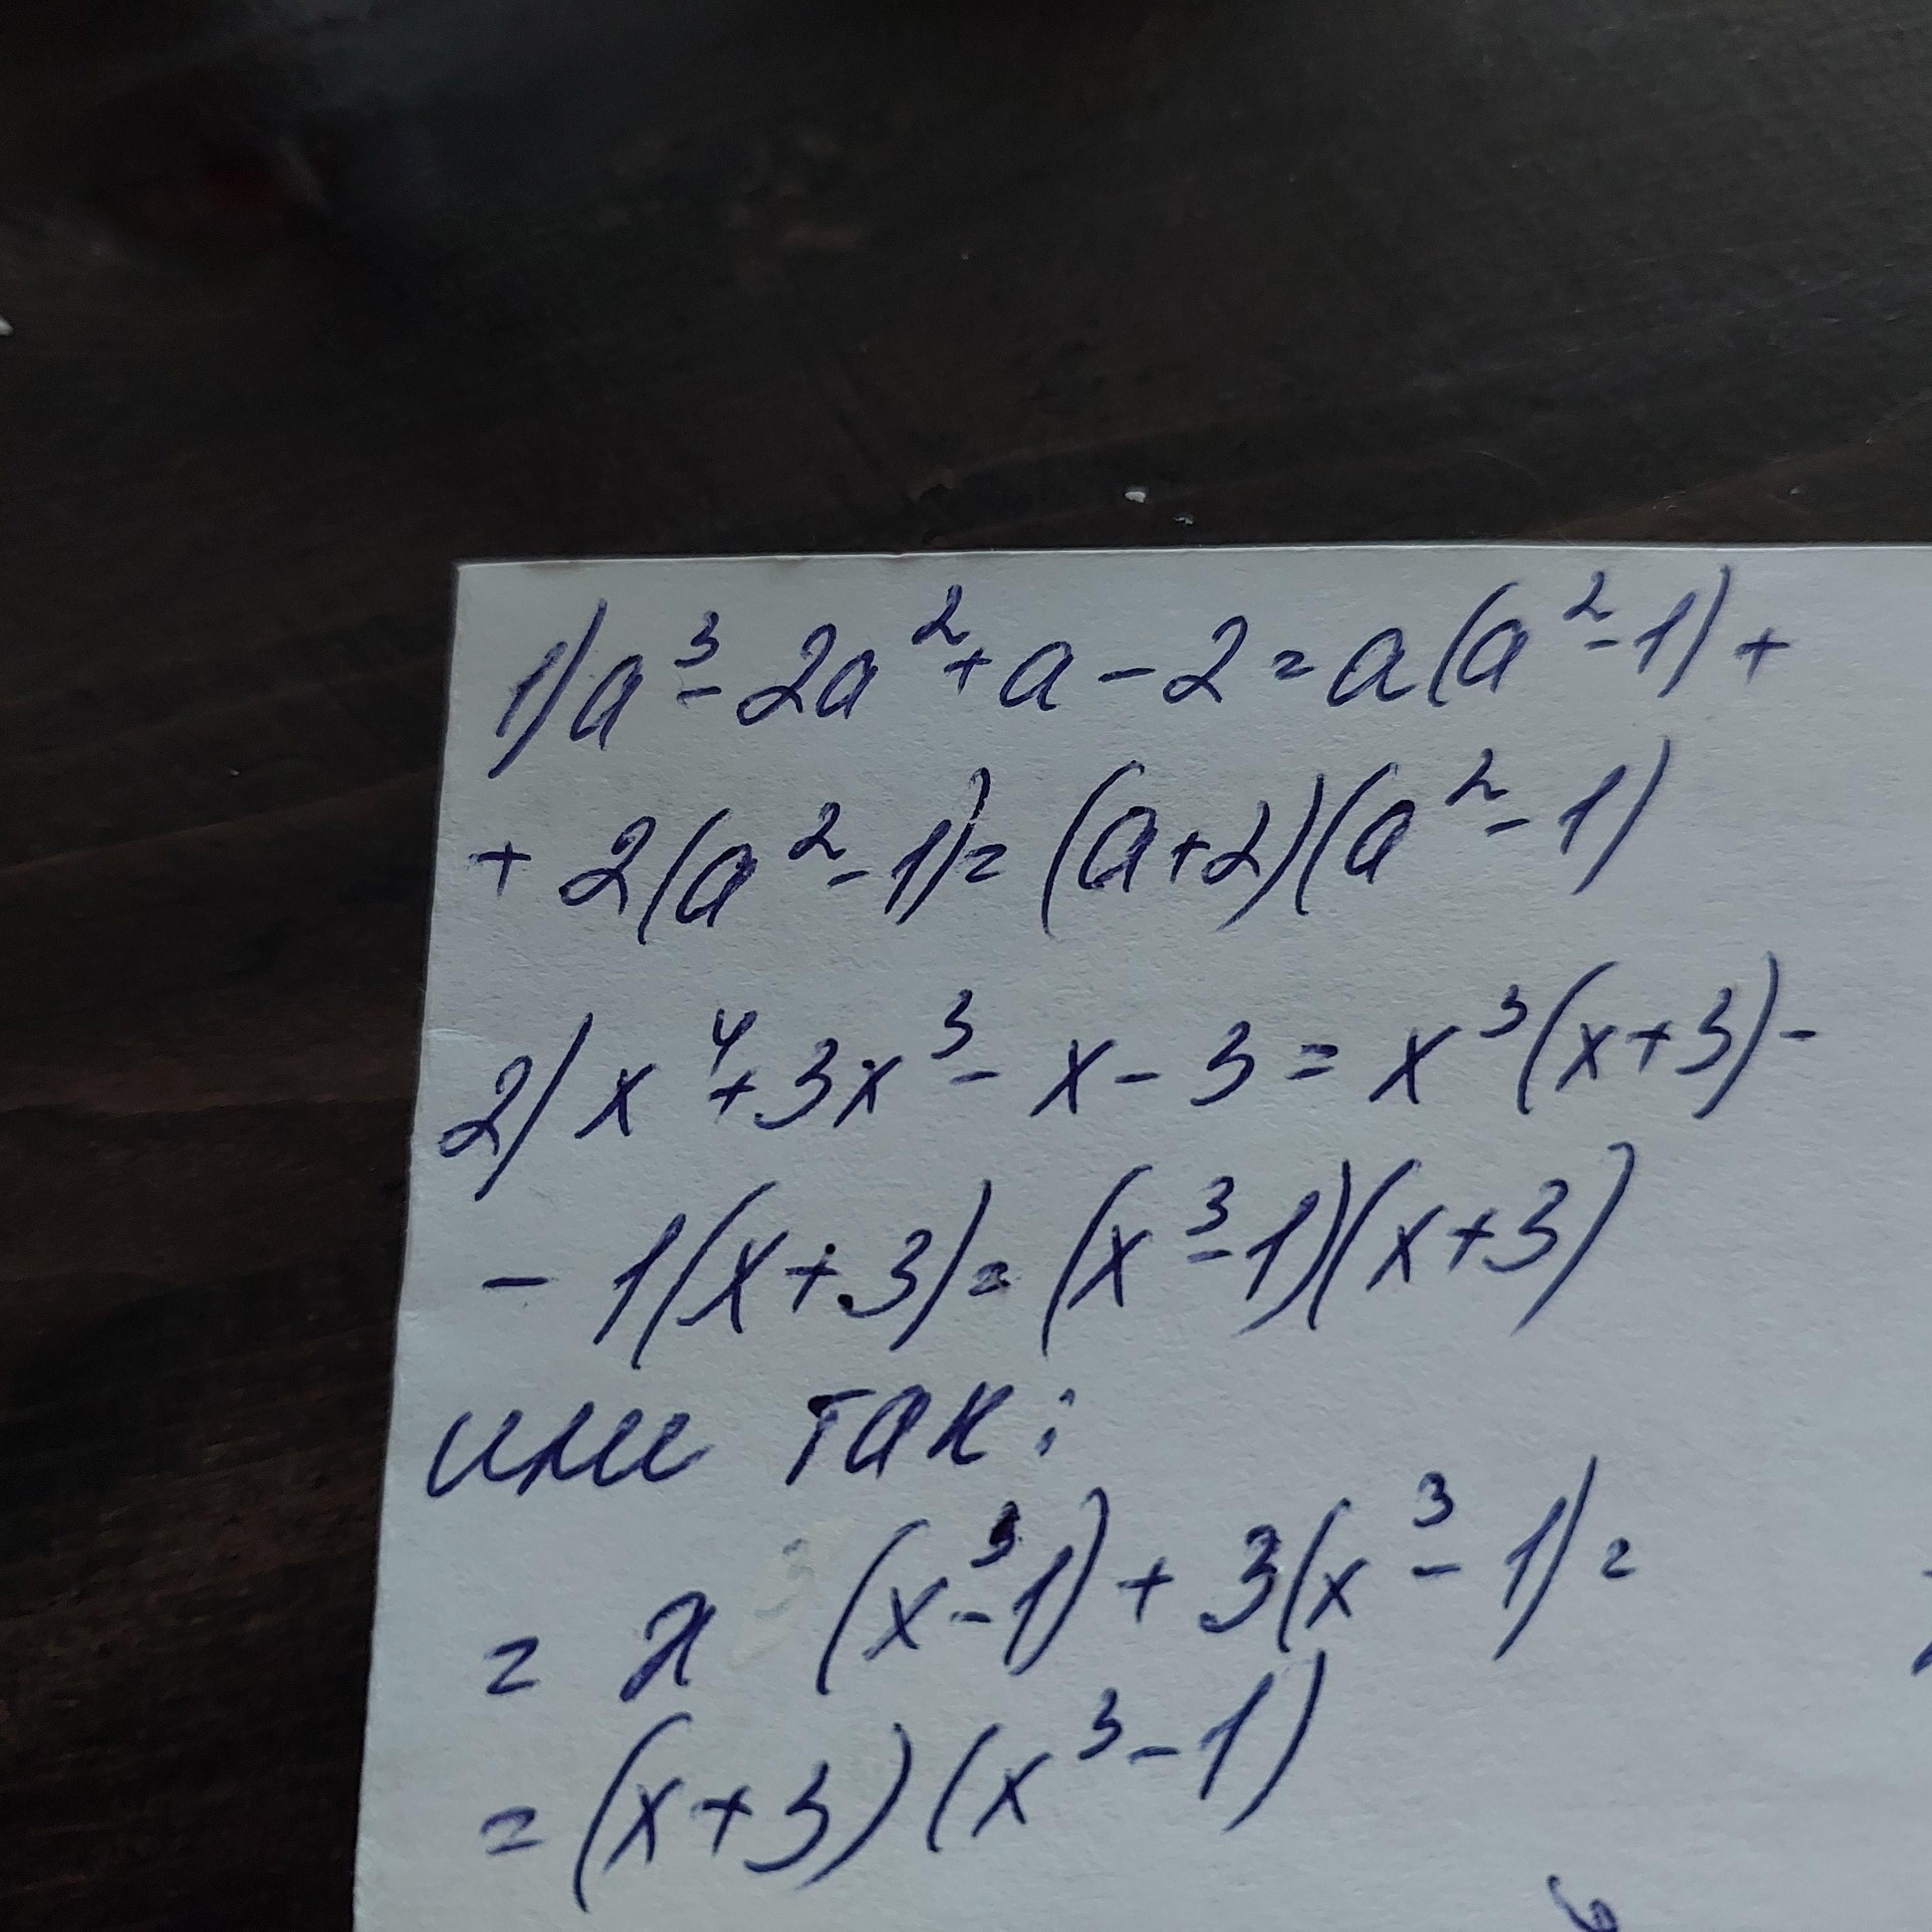 1) a³ - 2a² + a - 2 = a(a² - 1) +
+ 2(a² - 1) = (a + 2)(a² - 1)
2) x⁴ + 3x³ - x - 3 = x³(x + 3) -
- 1(x + 3) = (x³ - 1)(x + 3)
или так:
= x (x³ - 1) + 3(x³ - 1) =
= (x + 3)(x³ - 1)